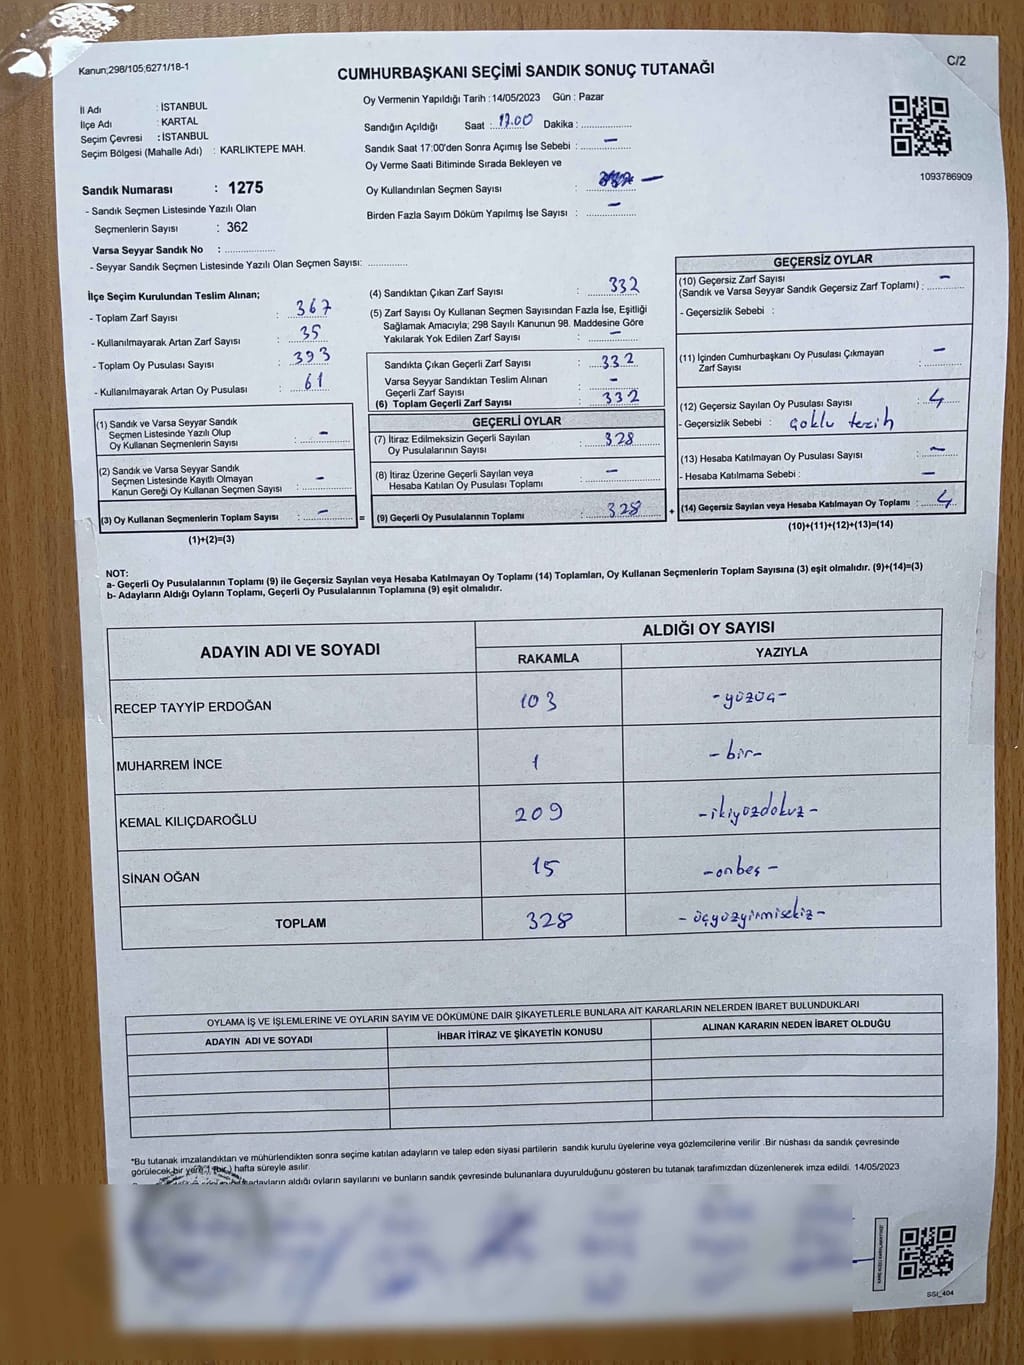 Kanun;298/105;6271/18-1
C/2
CUMHURBAŞKANI SEÇİMİ SANDIK SONUÇ TUTANAĞI
İl Adı : İSTANBUL
İlçe Adı : KARTAL
Seçim Çevresi : İSTANBUL
Seçim Bölgesi (Mahalle Adı) : KARLIKTEPE MAH.
Sandık Numarası : 1275
- Sandık Seçmen Listesinde Yazılı Olan
Seçmenlerin Sayısı : 362
Varsa Seyyar Sandık No : ..................
- Seyyar Sandık Seçmen Listesinde Yazılı Olan Seçmen Sayısı: ............
Oy Vermenin Yapıldığı Tarih : 14/05/2023 Gün : Pazar
Sandığın Açıldığı Saat : 17.00 Dakika : ..................
Sandık Saat 17:00'den Sonra Açımış İse Sebebi : —
Oy Verme Saati Bitiminde Sırada Bekleyen ve
Oy Kullandırılan Seçmen Sayısı : —
Birden Fazla Sayım Döküm Yapılmış İse Sayısı : —
1093786909
İlçe Seçim Kurulundan Teslim Alınan;
- Toplam Zarf Sayısı : 367
- Kullanılmayarak Artan Zarf Sayısı : 35
- Toplam Oy Pusulası Sayısı : 393
- Kullanılmayarak Artan Oy Pusulası : 61
(1) Sandık ve Varsa Seyyar Sandık
Seçmen Listesinde Yazılı Olup
Oy Kullanan Seçmenlerin Sayısı : —
(2) Sandık ve Varsa Seyyar Sandık
Seçmen Listesinde Kayıtlı Olmayan
Kanun Gereği Oy Kullanan Seçmen Sayısı : —
(3) Oy Kullanan Seçmenlerin Toplam Sayısı : — =
(1)+(2)=(3)
(4) Sandıktan Çıkan Zarf Sayısı : 332
(5) Zarf Sayısı Oy Kullanan Seçmen Sayısından Fazla İse, Eşitliği
Sağlamak Amacıyla; 298 Sayılı Kanunun 98. Maddesine Göre
Yakılarak Yok Edilen Zarf Sayısı : —
Sandıkta Çıkan Geçerli Zarf Sayısı : 332
Varsa Seyyar Sandıktan Teslim Alınan
Geçerli Zarf Sayısı : —
(6) Toplam Geçerli Zarf Sayısı : 332
GEÇERLİ OYLAR
(7) İtiraz Edilmeksizin Geçerli Sayılan
Oy Pusulalarının Sayısı : 328
(8) İtiraz Üzerine Geçerli Sayılan veya
Hesaba Katılan Oy Pusulası Toplamı : —
(9) Geçerli Oy Pusulalarının Toplamı : 328 +
GEÇERSİZ OYLAR
(10) Geçersiz Zarf Sayısı
(Sandık ve Varsa Seyyar Sandık Geçersiz Zarf Toplamı) : —
- Geçersizlik Sebebi :
(11) İçinden Cumhurbaşkanı Oy Pusulası Çıkmayan
Zarf Sayısı : —
(12) Geçersiz Sayılan Oy Pusulası Sayısı : 4
- Geçersizlik Sebebi : çoklu tezih
(13) Hesaba Katılmayan Oy Pusulası Sayısı : —
- Hesaba Katılmama Sebebi : —
(14) Geçersiz Sayılan veya Hesaba Katılmayan Oy Toplamı : 4
(10)+(11)+(12)+(13)=(14)
NOT:
a- Geçerli Oy Pusulalarının Toplamı (9) ile Geçersiz Sayılan veya Hesaba Katılmayan Oy Toplamı (14) Toplamları, Oy Kullanan Seçmenlerin Toplam Sayısına (3) eşit olmalıdır. (9)+(14)=(3)
b- Adayların Aldığı Oyların Toplamı, Geçerli Oy Pusulalarının Toplamına (9) eşit olmalıdır.
ADAYIN ADI VE SOYADI
ALDIĞI OY SAYISI
RAKAMLA YAZIYLA
RECEP TAYYİP ERDOĞAN 103 -yüzüç-
MUHARREM İNCE 1 -bir-
KEMAL KILIÇDAROĞLU 209 -ikiyüzdokuz-
SİNAN OĞAN 15 -onbeş-
TOPLAM 328 -üçyüzyirmisekiz-
OYLAMA İŞ VE İŞLEMLERİNE VE OYLARIN SAYIM VE DÖKÜMÜNE DAİR ŞİKAYETLERLE BUNLARA AİT KARARLARIN NELERDEN İBARET BULUNDUKLARI
ADAYIN ADI VE SOYADI İHBAR İTİRAZ VE ŞİKAYETİN KONUSU ALINAN KARARIN NEDEN İBARET OLDUĞU
*Bu tutanak imzalandıktan ve mühürlendikten sonra seçime katılan adayların ve talep eden siyasi partilerin sandık kurulu üyelerine veya gözlemcilerine verilir .Bir nüshası da sandık çevresinde
görülecek bir yere 1 (bir) hafta süreyle asılır.
adayların aldığı oyların sayılarını ve bunların sandık çevresinde bulunanlara duyurulduğunu gösteren bu tutanak tarafımızdan düzenlenerek imza edildi. 14/05/2023
SSI_404